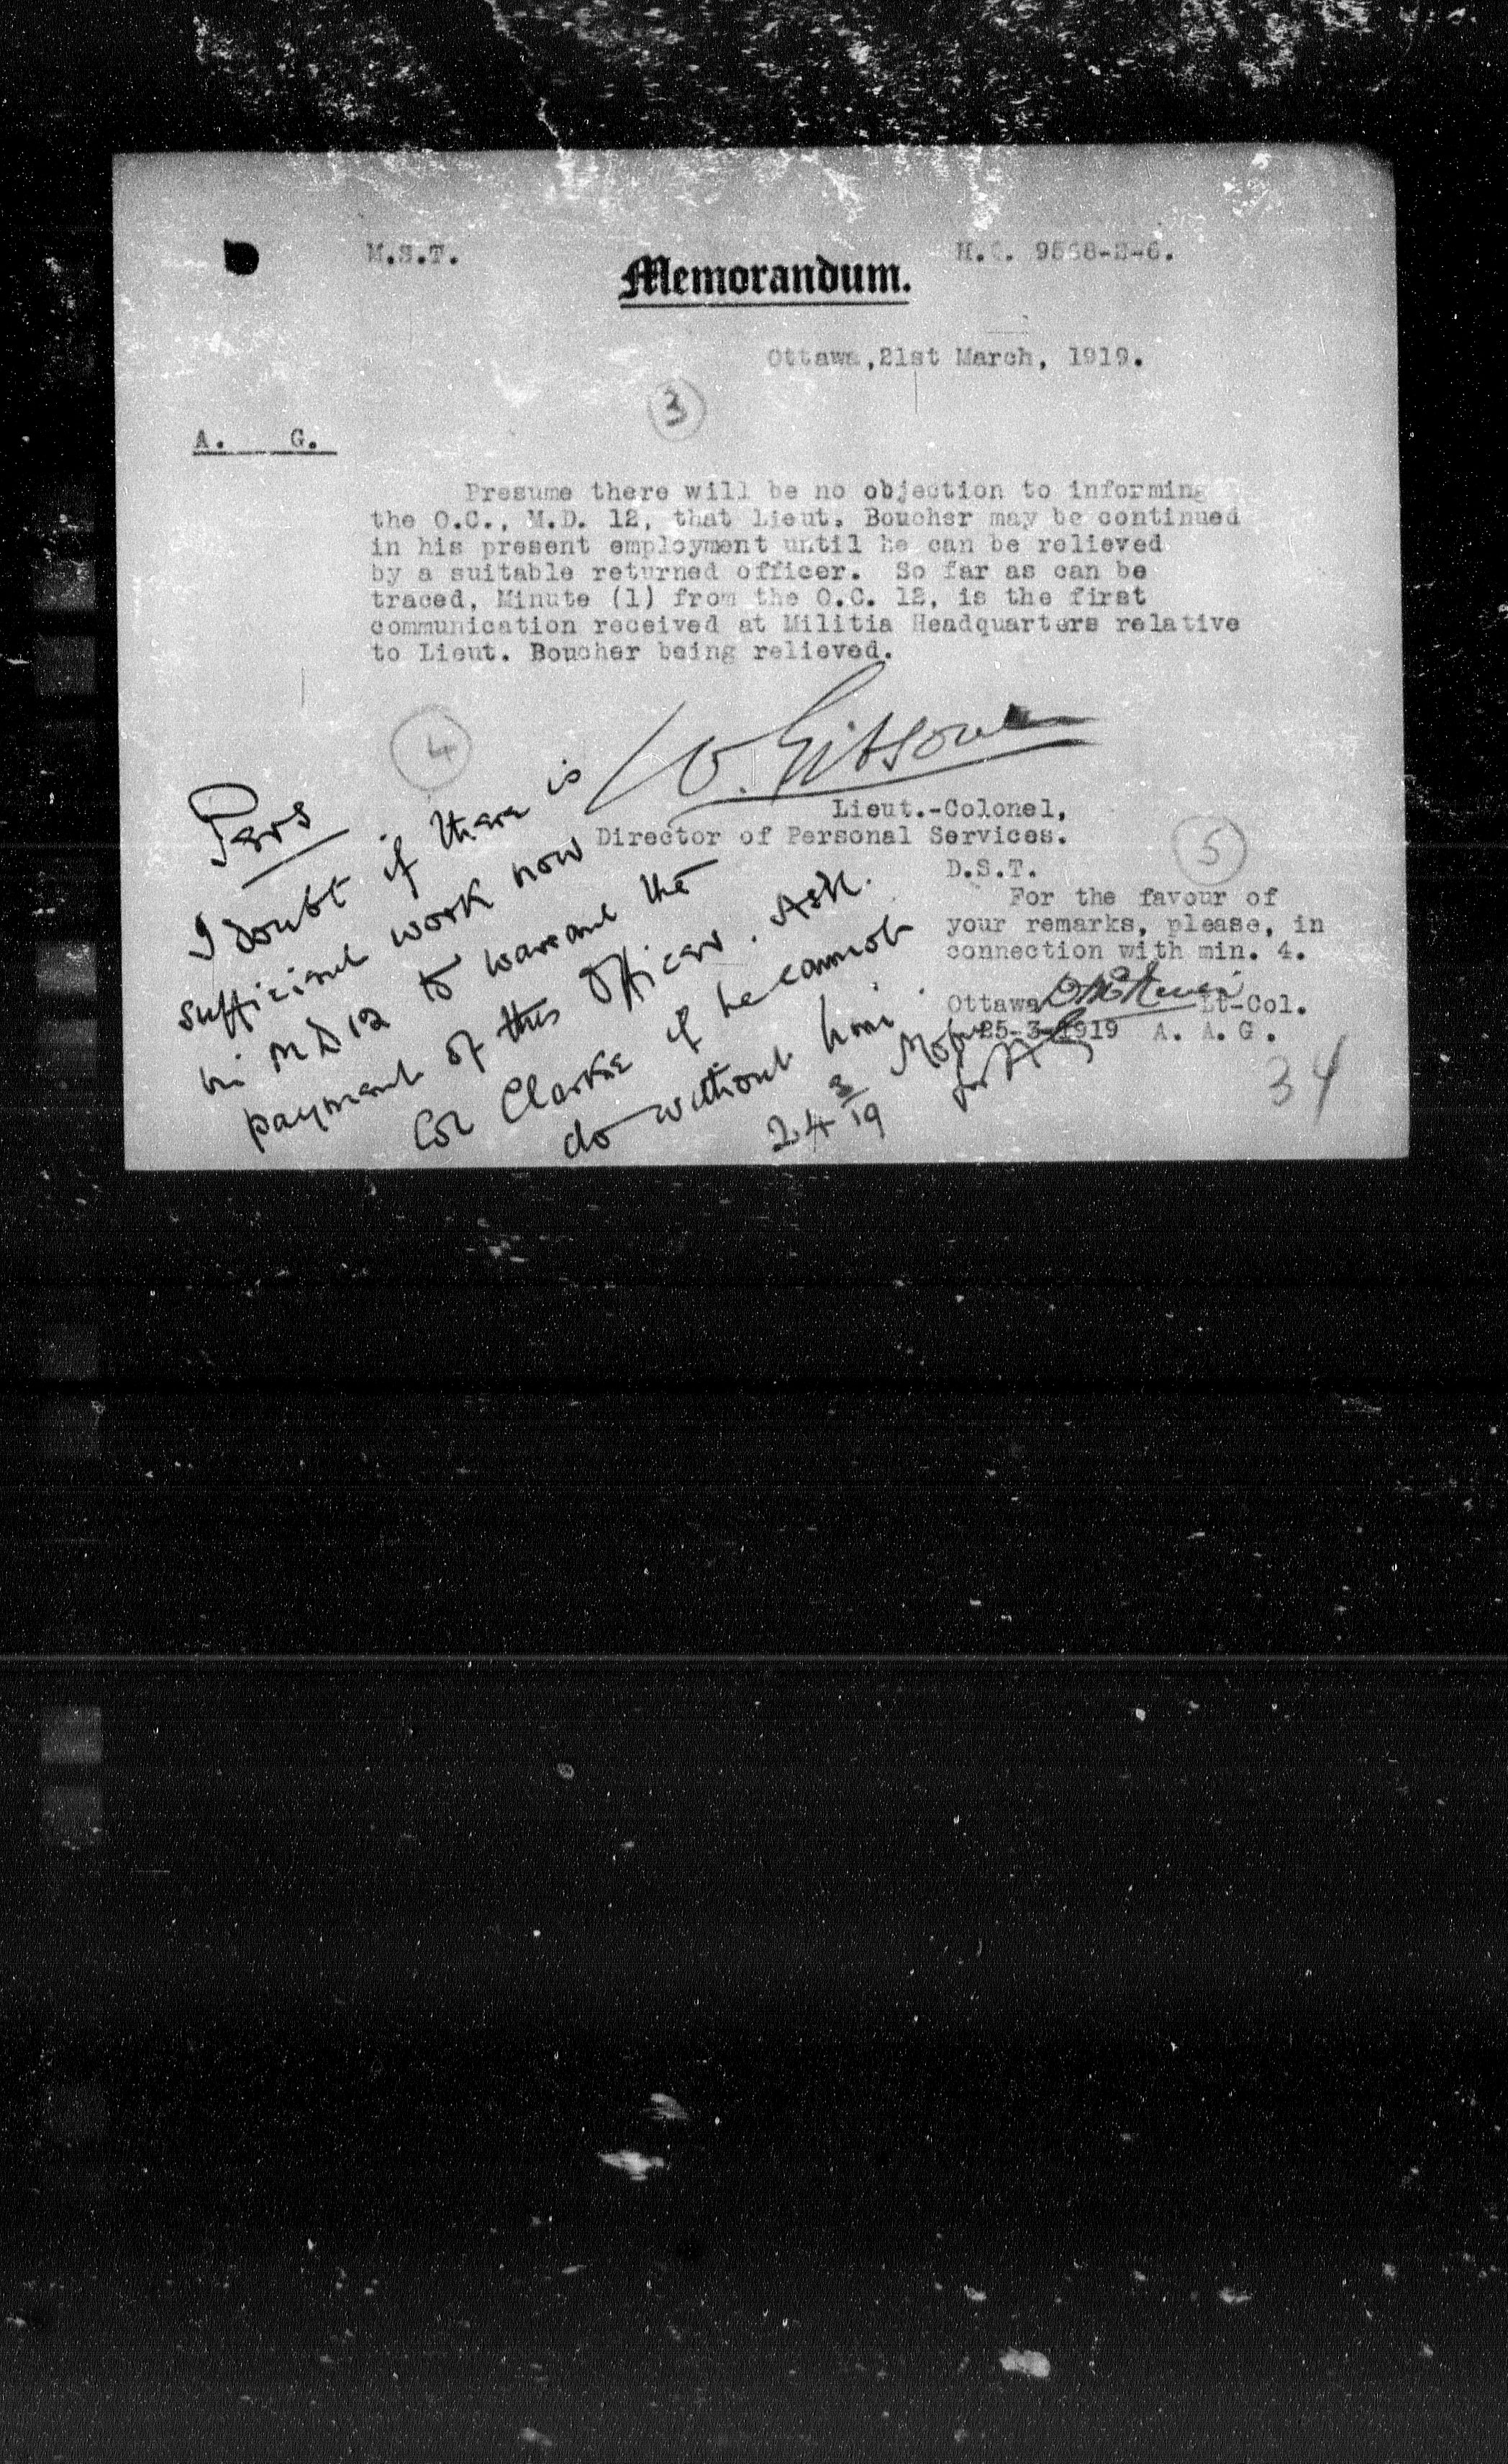 M.S.T.
H.Q. 9568-2-6.
Memorandum.
Ottawa,21st March, 1919.
3
A. G.
Presume there will be no objection to informing
the O.C., M.D. 12, that Lieut. Boucher may be continued
in his present employment until he can be relieved
by a suitable returned officer. So far as can be
traced, Minute (1) from the O.C. 12, is the first
communication received at Militia Headquarters relative
to Lieut. Boucher being relieved.
Lieut.-Colonel,
Director of Personal Services.
4
Pers
I doubt if there is
sufficient work now
in M D 12 to warrant the
payment of this Officer. Ask
Col Clarke if he cannot
do without him.
24 3/19
for AG
5
D.S.T.
For the favour of
your remarks, please, in
connection with min. 4.
Ottawa Lt-Col.
25-3-1919 A. A.G.
34